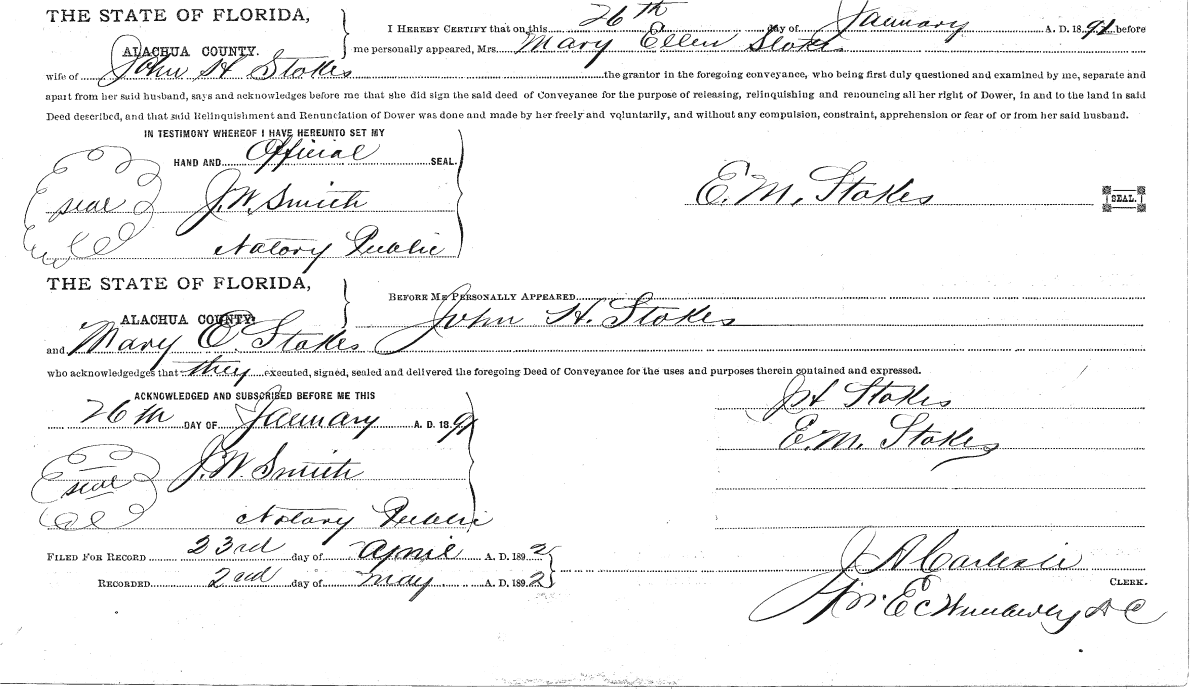 THE STATE OF FLORIDA,
ALACHUA COUNTY.
I HEREBY CERTIFY that on this 26th day of January A. D. 1891 before
me personally appeared, Mrs. Mary Ellen Stokes
wife of John H Stokes the grantor in the foregoing conveyance, who being first duly questioned and examined by me, separate and
apart from her said husband, says and acknowledges before me that she did sign the said deed of Conveyance for the purpose of releasing, relinquishing and renouncing all her right of Dower, in and to the land in said
Deed described, and that said Relinquishment and Renunciation of Dower was done and made by her freely and voluntarily, and without any compulsion, constraint, apprehension or fear of or from her said husband.
IN TESTIMONY WHEREOF I HAVE HEREUNTO SET MY
HAND AND Official SEAL.
seal J. W. Smith
Notary Public
E. M. Stokes SEAL.
THE STATE OF FLORIDA,
ALACHUA COUNTY.
BEFORE ME PERSONALLY APPEARED
John H. Stokes
and Mary E. Stokes
who acknowledgedges that they executed, signed, sealed and delivered the foregoing Deed of Conveyance for the uses and purposes therein contained and expressed.
ACKNOWLEDGED AND SUBSCRIBED BEFORE ME THIS
26th DAY OF January A. D. 1891
seal J. W. Smith
Notary Public
J H Stokes
E. M. Stokes
FILED FOR RECORD 23rd day of April A. D. 1892
RECORDED 2nd day of May A. D. 1892
J A Carlisle
CLERK.
D C